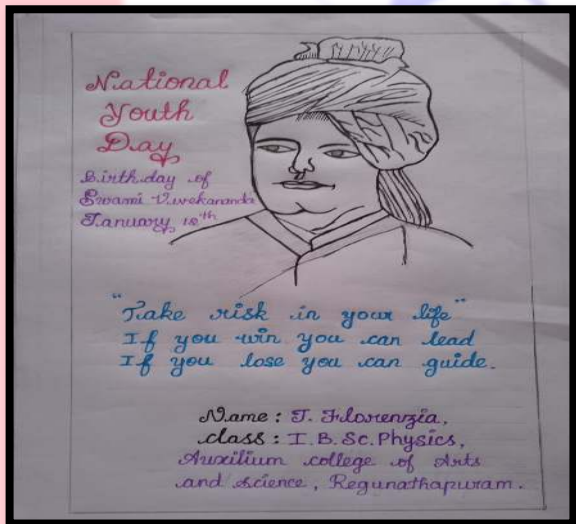 National
Youth
Day
Birthday of
Swami Vivekananda
January 12th
"Take risk in your life"
If you win you can lead
If you lose you can guide.
Name : J. Florenzia,
class : I. B. Sc. Physics,
Auxilium college of Arts
and science, Regunathapuram.